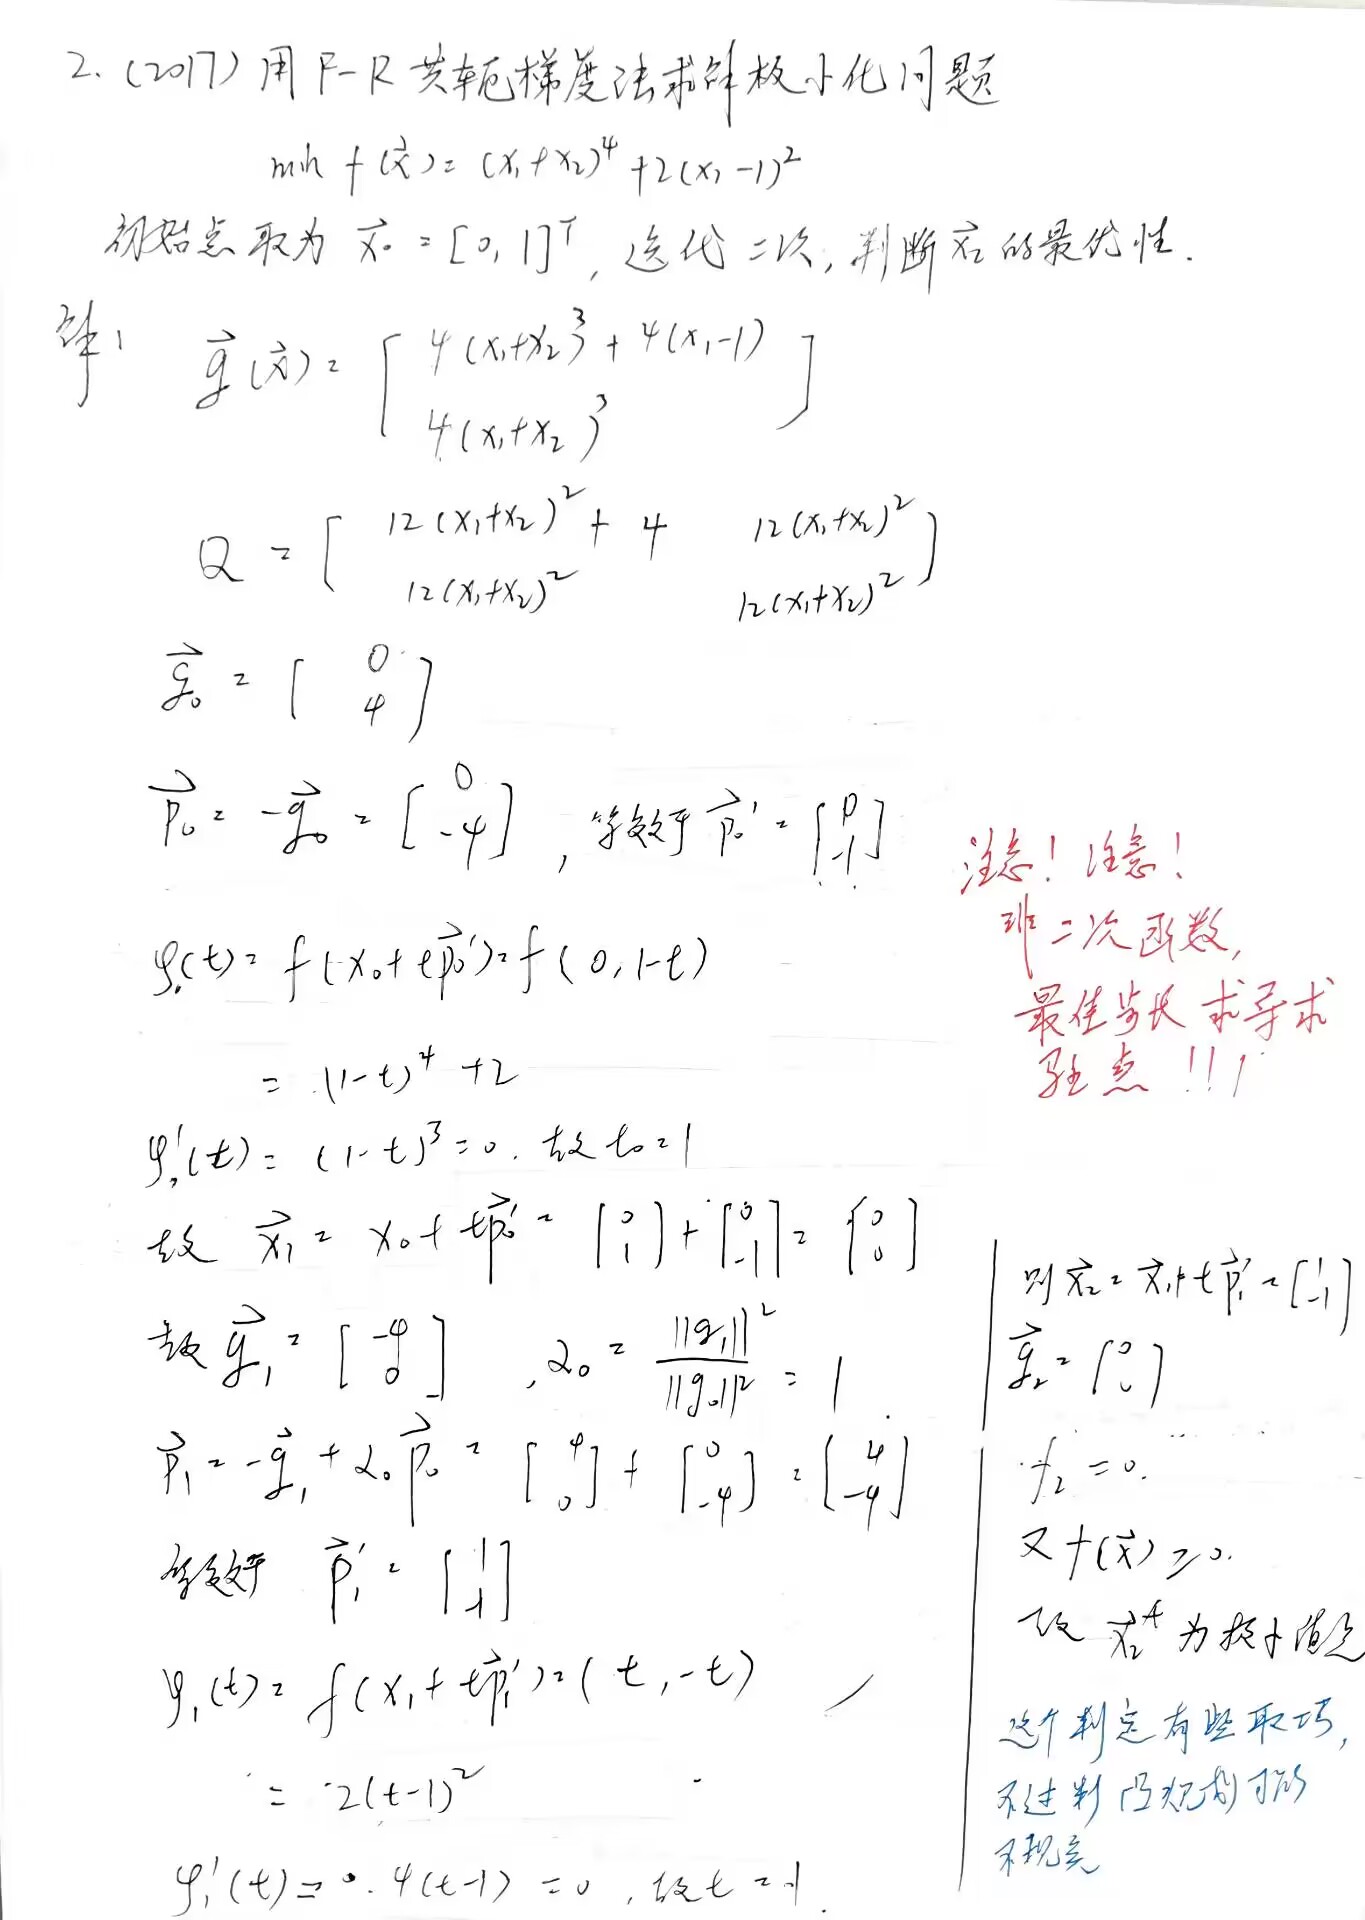 2. (2017) 用F-R共轭梯度法求解极小化问题
min f(x⃗) = (x₁+x₂)⁴ + 2(x₁-1)²
初始点取为 x⃗₀ = [0, 1]ᵀ, 迭代二次, 判断x⃗₂的最优性.
解: g⃗(x⃗) = [ 4(x₁+x₂)³ + 4(x₁-1)
4(x₁+x₂)³ ]
Q = [ 12(x₁+x₂)² + 4 12(x₁+x₂)²
12(x₁+x₂)² 12(x₁+x₂)² ]
g⃗₀ = [ 0
4 ]
p⃗₀ = -g⃗₀ = [ 0 -4 ], 等效于 p⃗₀' = [ 0 -1 ]
φ₀(t) = f(x₀+tp⃗₀') = f(0, 1-t)
= (1-t)⁴ + 2
φ₀'(t) = (1-t)³ = 0. 故t₀=1
故 x⃗₁ = x₀ + tp⃗₀' = [ 0 1 ] + [ 0 -1 ] = [ 0 0 ]
故 g⃗₁ = [ -4 0 ], α₀ = ||g₁||² / ||g₀||² = 1
p⃗₁ = -g⃗₁ + α₀p⃗₀ = [ 4 0 ] + [ 0 -4 ] = [ 4 -4 ]
等效于 p⃗₁' = [ 1 -1 ]
φ₁(t) = f(x₁+tp⃗₁') = (t, -t)
= 2(t-1)²
φ₁'(t) = 4(t-1) = 0, 故t = 1
注意! 注意!
非二次函数,
最佳步长 求导求
驻点!!!
则x⃗₂ = x⃗₁+tp⃗₁' = [ 1 -1 ]
g⃗₂ = [ 0 0 ]
f₂ = 0.
又f(x⃗) ≥ 0.
故 x⃗₂* 为极小值点
这个判定有些取巧,
不过判凸规划可能
不现实